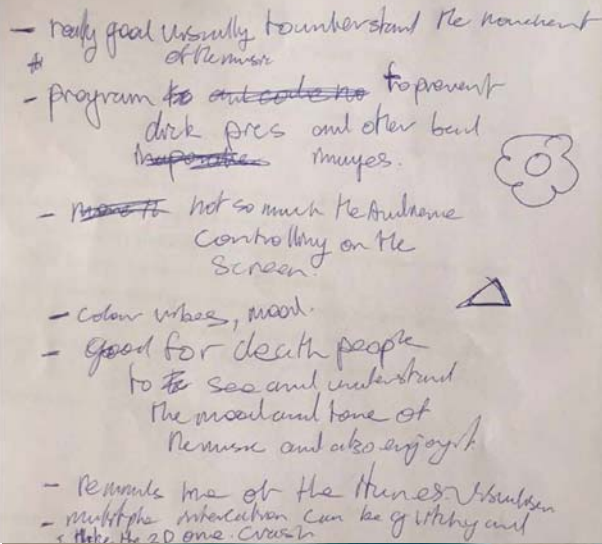 - really good visually to understand the movement
of the music
- program to prevent
dick pics and other bad
images.
- not so much the audience
controlling on the
screen.
- colour vibes, mood.
- good for death people
to see and understand
the mood and tone of
the music and also enjoy it.
- reminds me of the itunes visualiser
- multiple interaction can be glitchy and
make the 2D one. crash